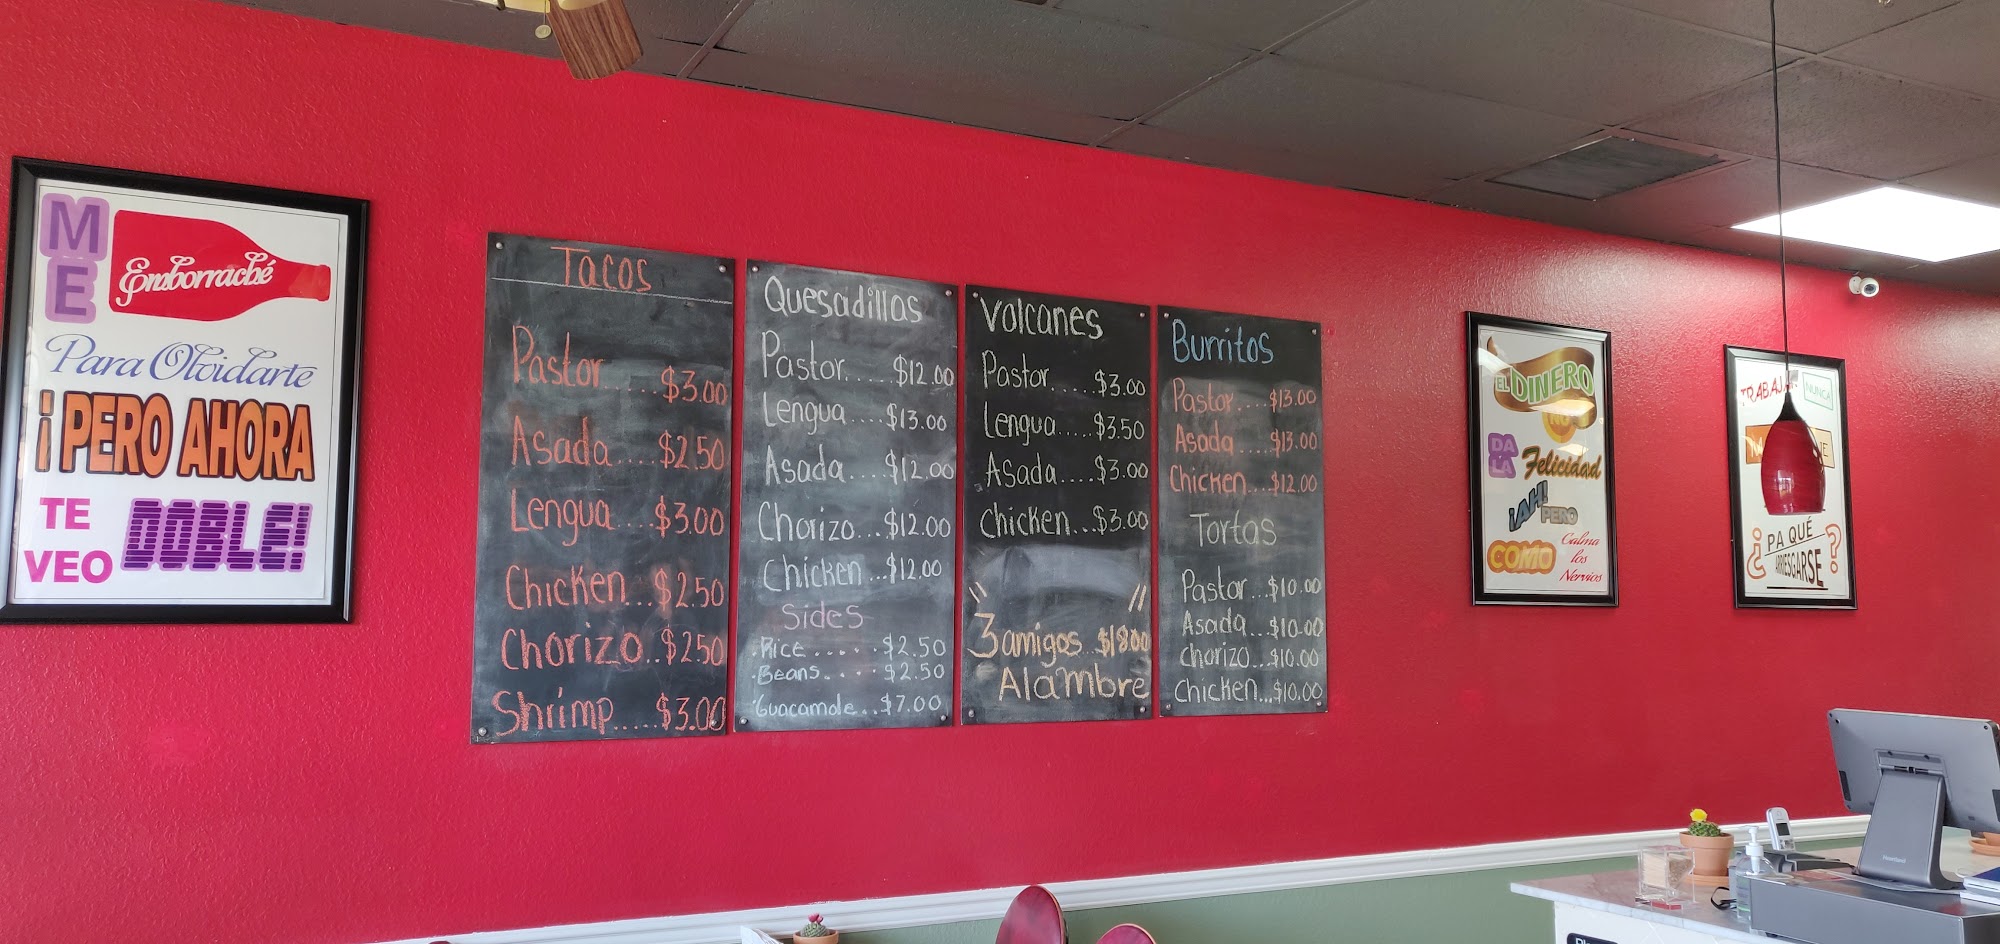 ME
Emborraché
Para Olvidarte
¡PERO AHORA
TE
VEO
DOBLE!
Tacos
Pastor....$3.00
Asada....$2.50
Lengua....$3.00
Chicken...$2.50
Chorizo..$2.50
Shrimp.....$3.00
Quesadillas
Pastor.....$12.00
Lengua....$13.00
Asada....$12.00
Chorizo...$12.00
Chicken...$12.00
Sides
·Rice.....$2.50
·Beans....$2.50
·Guacamole..$7.00
Volcanes
Pastor.....$3.00
Lengua.....$3.50
Asada....$3.00
Chicken...$3.00
3 amigos..$18.00
Alambre
Burritos
Pastor....$13.00
Asada....$13.00
Chicken...$12.00
Tortas
Pastor...$10.00
Asada...$10.00
Chorizo...$10.00
Chicken...$10.00
EL DINERO
NO
DA
LA
Felicidad
¡AH!
PERO
COMO
Calma
los
Nervios
NUNCA
¿PA QUÉ
ARRIESGARSE?